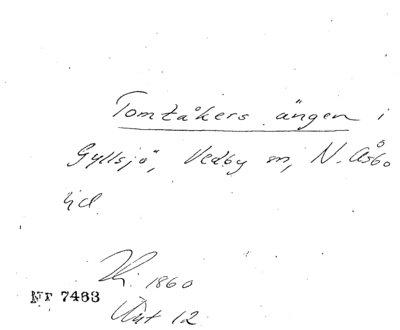 Tomtåkers ängen i
Gyllsjö, Vedby sn, N. Åsbo
hd.
1860
Nr 7463
12